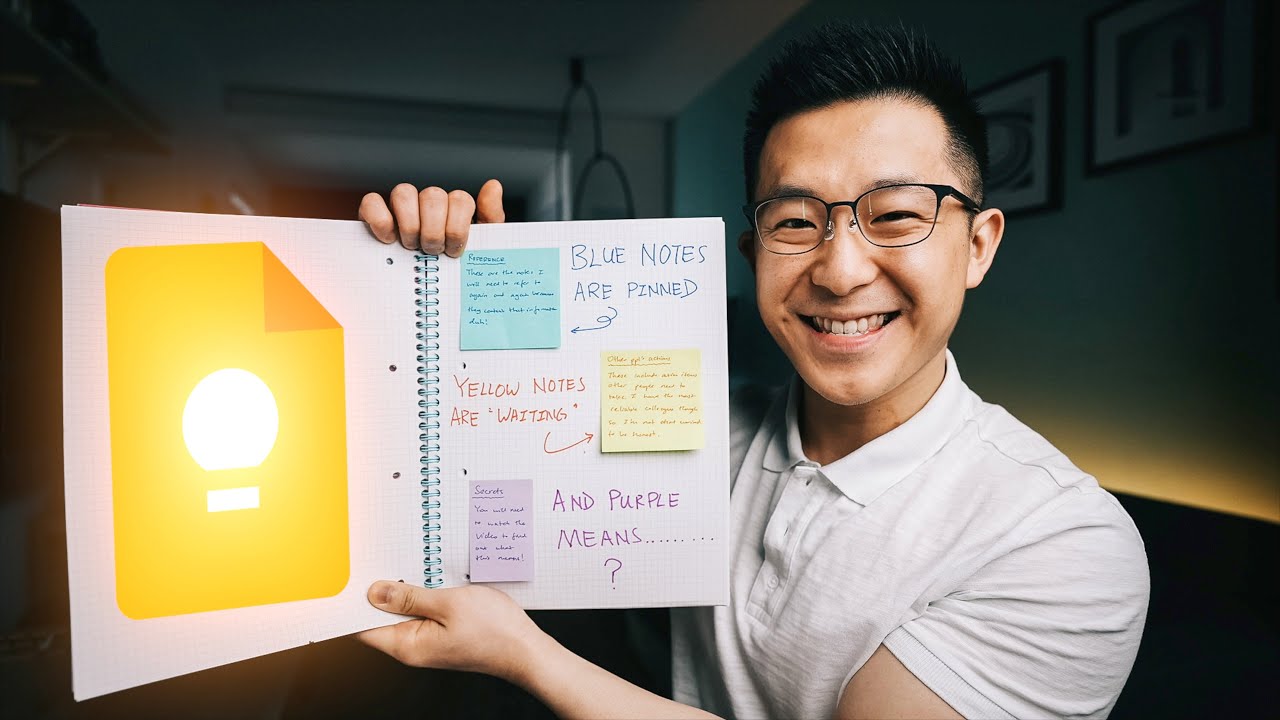 REFERENCE
These are the notes I
will need to refer to
again and again because
they contain that information
BLUE NOTES
ARE PINNED
YELLOW NOTES
ARE "WAITING"
Other ppl's actions
These include action items
other people need to
take. I have the most
reliable colleagues though
so I'm not about worried
to be honest.
Secrets
You will need
to watch the
video to find
out what
this means!
AND PURPLE
MEANS.........
?